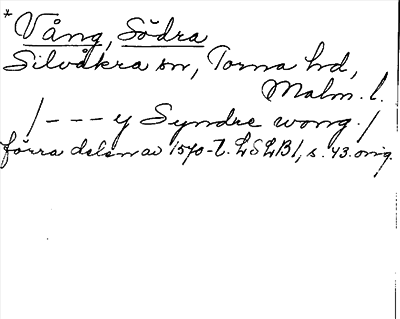 * Vång, Södra
Silvåkra sn, Torna hd,
Malm. l.
/ - - - y Syndre wong. /
förra delen av 1570-t. LSLB1, s. 43. orig.